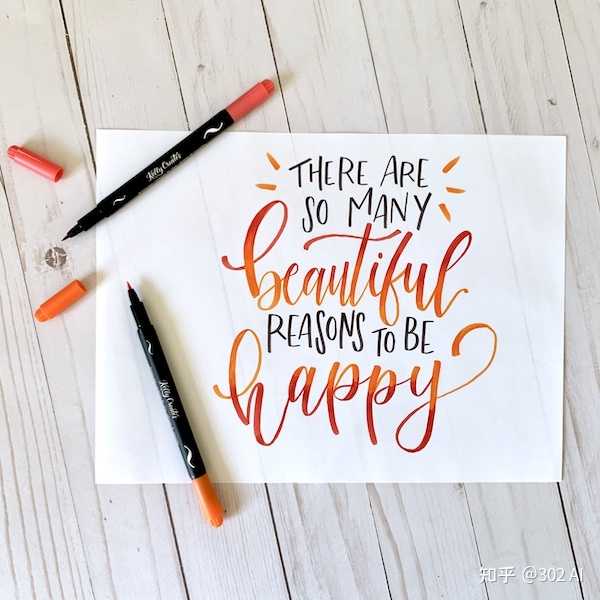 THERE ARE
SO MANY
beautiful
REASONS TO BE
happy
Kelly Creates
Kelly Creates
知乎 @302 AI